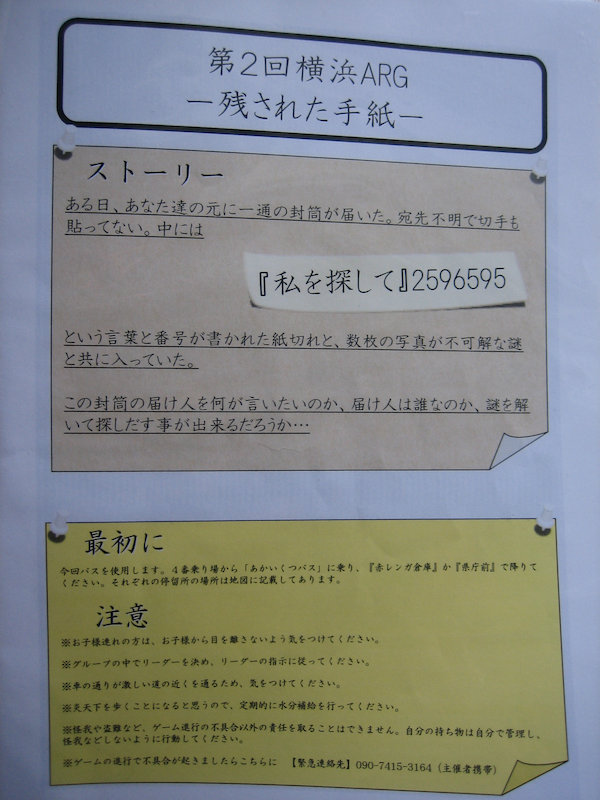 第2回横浜ARG
ー残された手紙ー
ストーリー
ある日、あなた達の元に一通の封筒が届いた。宛先不明で切手も
貼ってない。中には
『私を探して』2596595
という言葉と番号が書かれた紙切れと、数枚の写真が不可解な謎
と共に入っていた。
この封筒の届け人を何が言いたいのか、届け人は誰なのか、謎を解
いて探しだす事が出来るだろうか…
最初に
今回バスを使用します。4番乗り場から「あかいくつバス」に乗り、『赤レンガ倉庫』か『県庁前』で降りて
ください。それぞれの停留所の場所は地図に記載してあります。
注意
※お子様連れの方は、お子様から目を離さないよう気をつけてください。
※グループの中でリーダーを決め、リーダーの指示に従ってください。
※車の通りが激しい道の近くを通るため、気をつけてください。
※炎天下を歩くことになると思うので、定期的に水分補給を行ってください。
※怪我や盗難など、ゲーム進行の不具合以外の責任を取ることはできません。自分の持ち物は自分で管理し、
怪我などしないように行動してください。
※ゲームの進行で不具合が起きましたらこちらに 【緊急連絡先】090-7415-3164（主催者携帯）